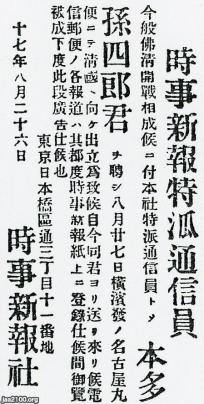 時事新報特派通信員
今般佛清開戰相成候ニ付本社特派通信員トメ 本多
孫四郎君ヲ聘シ八月廿七日横濱發ノ名古屋丸
便ニテ清國ヘ向ケ出立爲致候自今同君ヨリ送リ來リ候電
信郵便ノ各報道ハ其都度時事新報紙上ニ登録仕候間御覽
被成下度此段廣告仕候也
十七年八月二十六日
東京日本橋區通三丁目十一番地
時事新報社
jaa2100.org